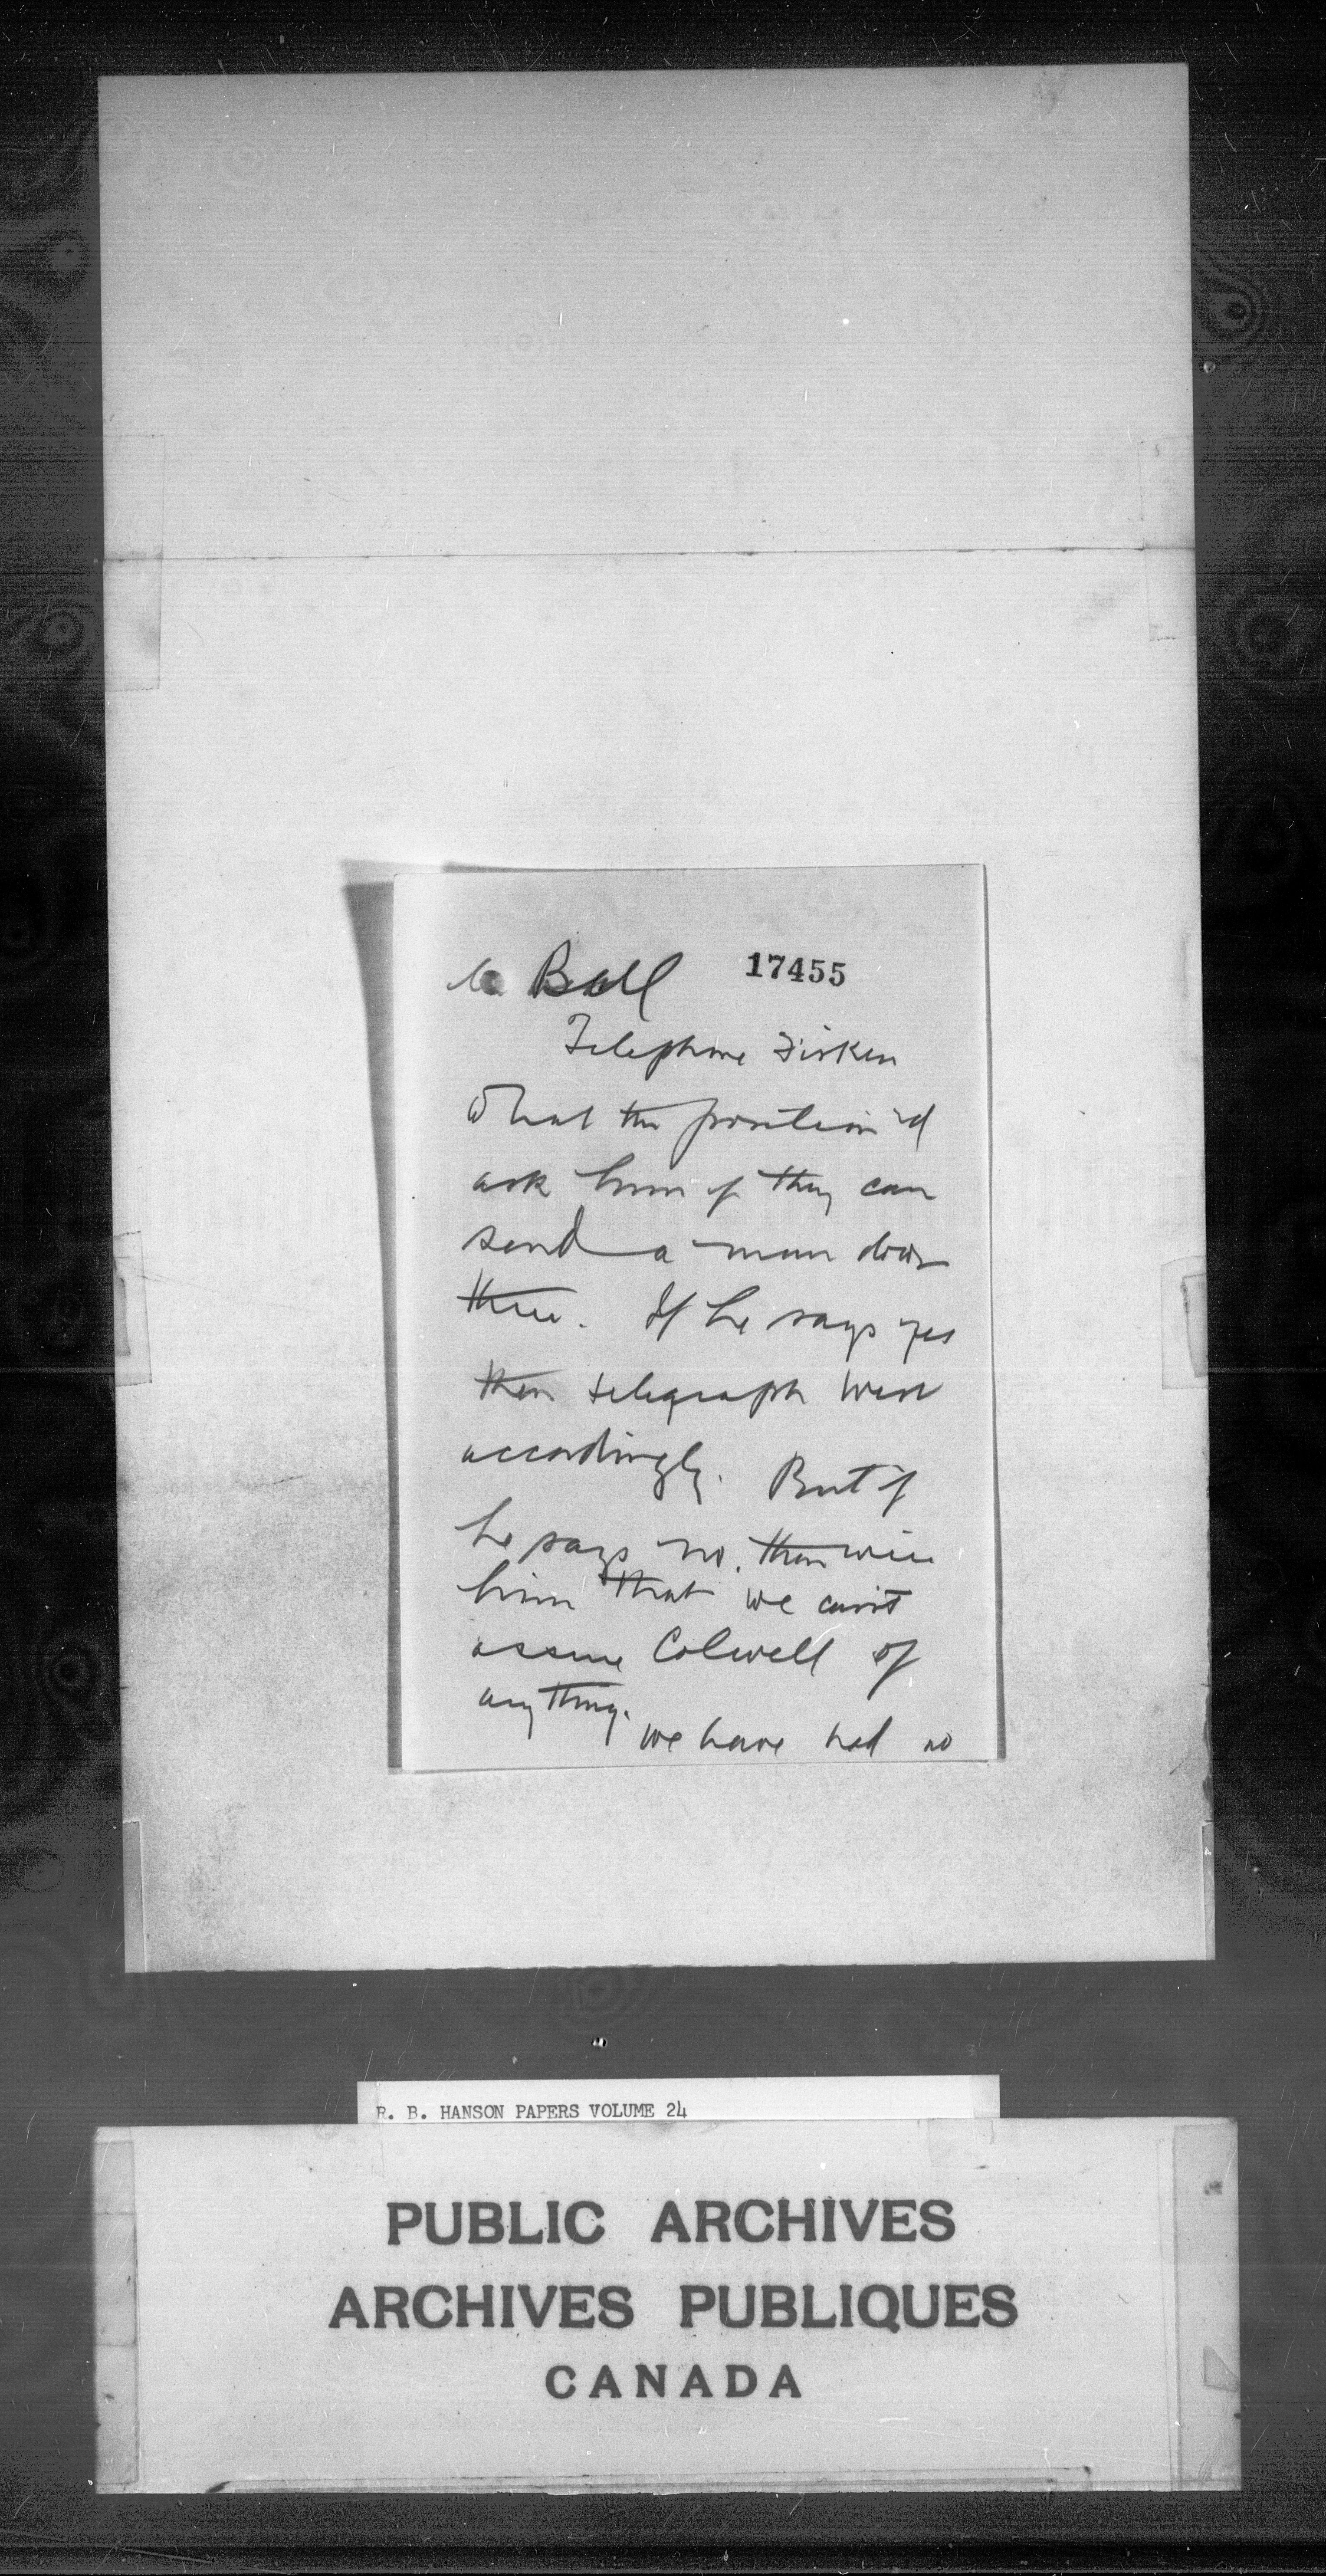 Ball 17455
Telephone Fisken
What the position is &
ask him if they can
send a man down
there. If he says yes
then telegraph West
accordingly. But if
he says no, then wire
him that we can't
assure Colwell of
anything.
we have had no
R. B. HANSON PAPERS VOLUME 24
PUBLIC ARCHIVES
ARCHIVES PUBLIQUES
CANADA